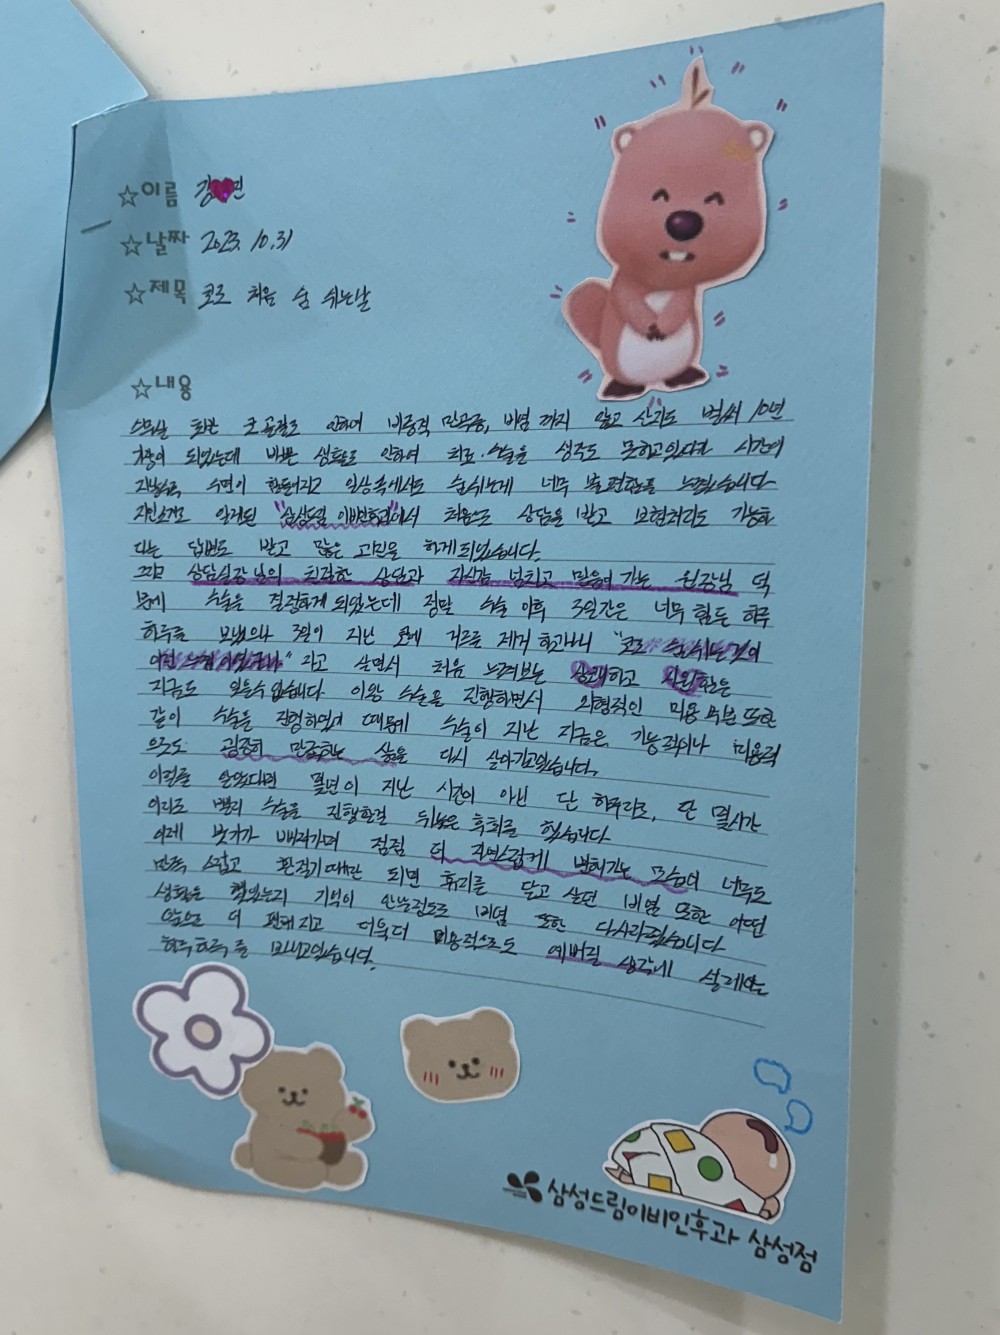 ☆이름 김♥민
☆날짜 2023. 10. 31
☆제목 코로 처음 숨 쉬는날
☆내용
코골절로 인하여 비중격 만곡증, 비염 까지 앓고 산지도 벌써 10년
차가 되었는데 바쁜 생활로 인하여 치료·수술을 생각도 못하고있다가 시간이
지날수록 수면이 힘들어지고 일상속에서도 숨쉬는게 너무 불편함을 느꼈습니다
지인소개로 알게된 "삼성드림 이비인후과"에서 처음으로 상담을 받고 보험처리도 가능하
다는 답변도 받고 많은 고민을 하게되었습니다.
그리고 상담실장님의 친절한 상담과 자신감 넘치고 믿음이 가는 원장님 덕
분에 수술을 결정하게 되었는데 정말 수술 이후 3일간은 너무 힘든 하루
하루를 보냈으나 3일이 지난 후에 거즈를 제거 하고나니 "코로 숨쉬는것이
이런 느낌 이었구나" 라고 살면서 처음 느껴보는 상쾌하고 시원함은
지금도 잊을수 없습니다 이왕 수술을 진행하면서 외형적인 미용 부분 또한
같이 수술을 진행하였기 때문에 수술이 지난 지금은 기능적이나 미용적
으로도 굉장히 만족하는 삶을 다시 살아가고있습니다.
이럴줄 알았다면 몇년이 지난 시간이 아닌 단 하루라도, 단 몇시간
이라도 빨리 수술을 진행할걸 뒤늦은 후회를 했습니다
이제 붓기가 빠져가며 점점 더 자연스럽게 변해가는 모습이 너무도
만족 스럽고 환절기때만 되면 휴지를 달고 살던 비염 또한 어떤
생활을 했었는지 기억이 안날정도로 비염 또한 다사라졌습니다
앞으로 더 편해 지고 더욱더 미용적으로도 예뻐질 생각에 설레이는
하루하루를 보내고있습니다.
삼성드림이비인후과 삼성점